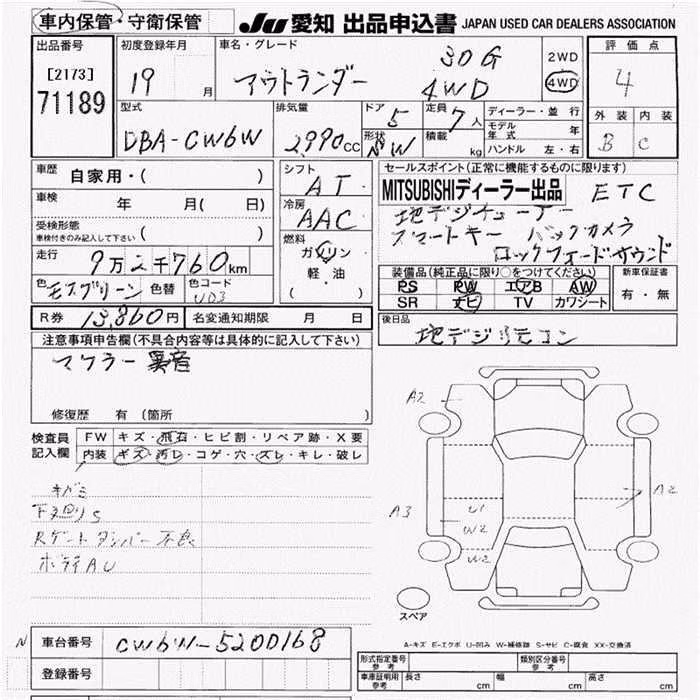 車内保管・守衛保管
JU 愛知 出品申込書 JAPAN USED CAR DEALERS ASSOCIATION
出品番号
[2173]
71189
初度登録年月
19 月
車名・グレード
アウトランダー
30G
4WD
2WD
4WD
評価点
4
外装 内装
B C
型式
DBA-CW6W
排気量
2,990 CC
ドア 5
形状 NW
定員 7 人
積載 kg
ディーラー・並行
モデル年式 年
ハンドル 左・右
車歴 自家用・( )
車検 年 月( 日)
受検形態
車検付きのみ記入して下さい ( )
走行 9万2千760km
色 モスグリーン 色替 色コード UD3
シフト AT
冷房 AAC
燃料
ガソリン
軽・油
( )
セールスポイント(正常に機能するものに限ります)
MITSUBISHIディーラー出品 ETC
地デジチューナー
スマートキー バックカメラ
ロックフォードサウンド
装備品(純正品に限り○をつけてください)
PS PW エアB AW
SR ナビ TV カワシート
新車保証書
有・無
R券 13,860円 名変通知期限 月 日
後日品
地デジリモコン
注意事項申告欄(不具合内容等は具体的に記入して下さい)
マフラー異音
修復歴 有(箇所 )
検査員記入欄
FW キズ・飛石・ヒビ割・リペア跡・X要
内装 キズ・汚レ・コゲ・穴・ズレ・キレ・破レ
キバミ
下廻りS
Rゲートダンパー不良
ボディAU
A2
A3
U1
W2
W2
A2
スペア
A-キズ E-エクボ U-凹み W-補修跡 S-サビ C-腐食 XX-交換済
N
車台番号 CW6W-5200168
登録番号
形式指定番号 参考
類別区分番号 参考
車庫証明用 参考 長さ cm 幅 cm 高さ cm